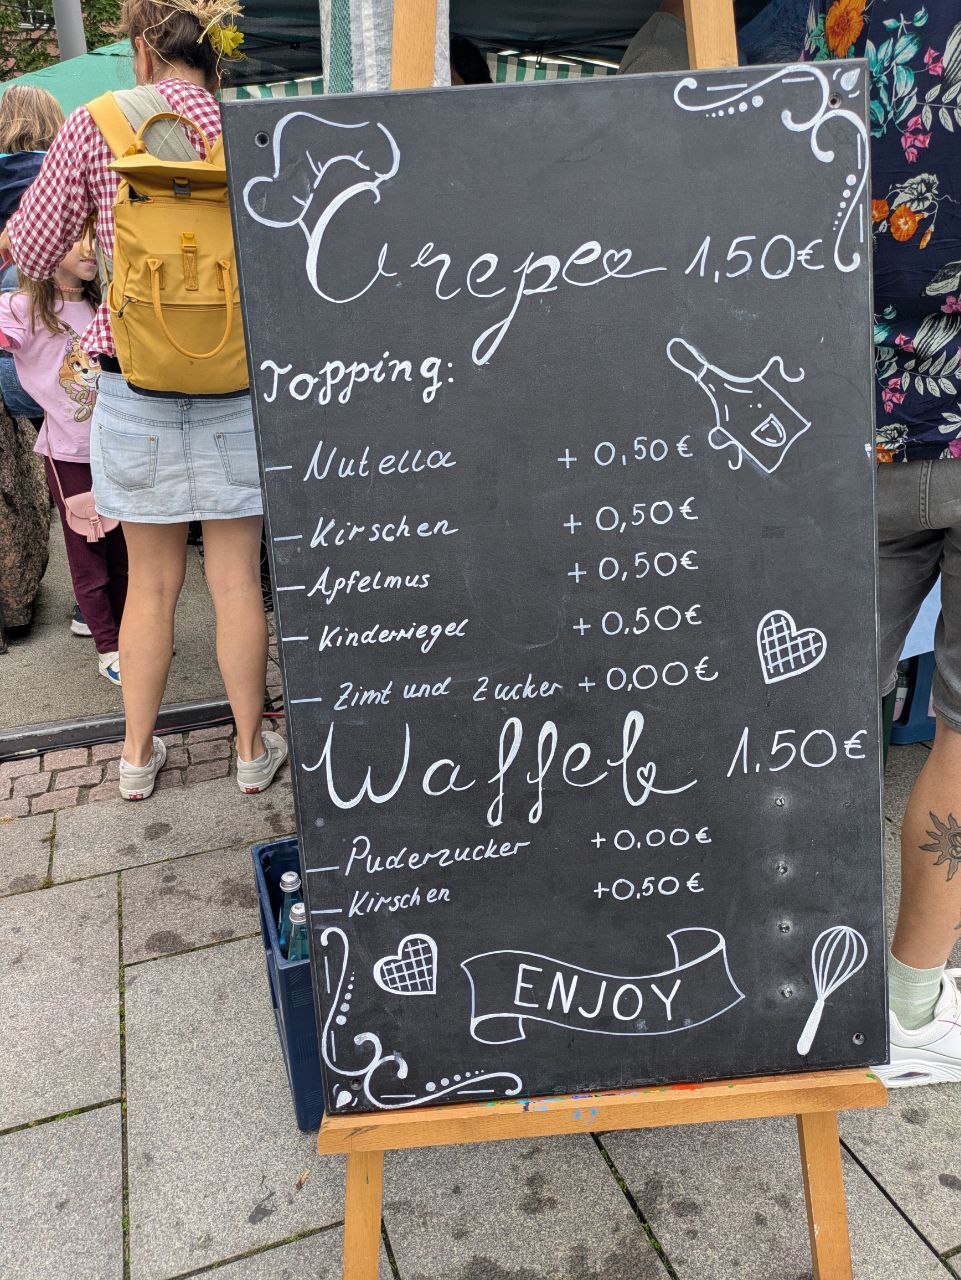 Crepe 1,50€
Topping:
– Nutella + 0,50€
– Kirschen + 0,50€
– Apfelmus + 0,50€
– Kinderriegel + 0.50€
– Zimt und Zucker + 0,00€
Waffel 1.50€
– Puderzucker +0.00€
– Kirschen +0,50€
ENJOY